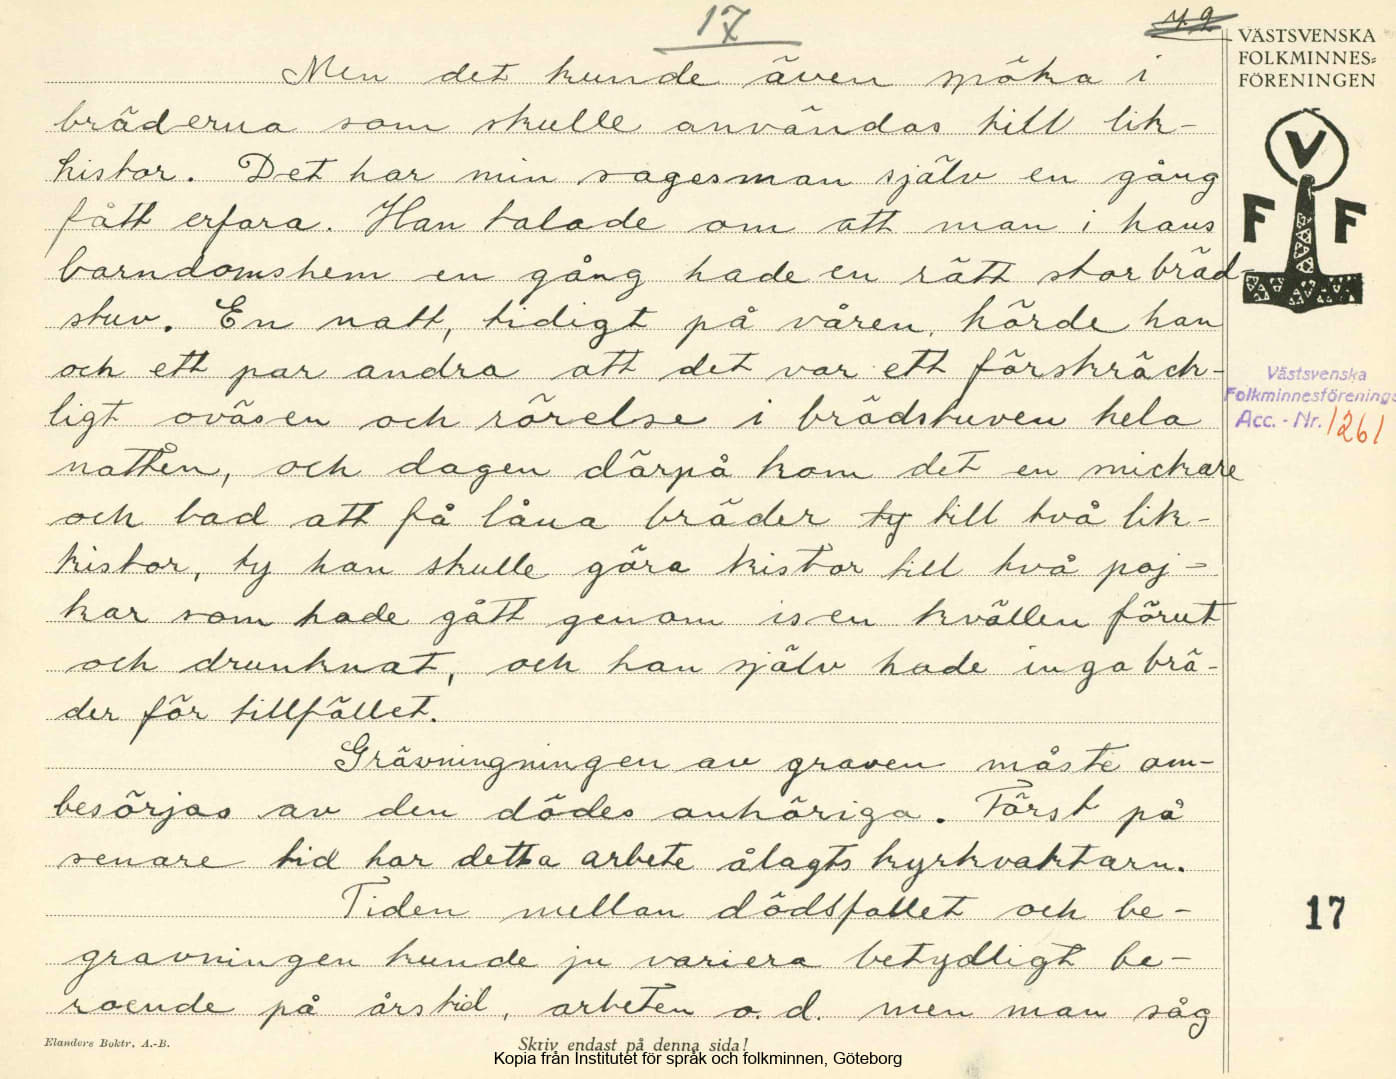 17
VÄSTSVENSKA
FOLKMINNES=
FÖRENINGEN
V
F F
Men det kunde även spöka i
bräderna som skulle användas till lik-
kistor. Det har min sagesman själv en gång
fått erfara. Han talade om att man i hans
barndomshem en gång hade en rätt stor bräd-
stuv. En natt, tidigt på våren, hörde han
och ett par andra att det var ett förskräck-
ligt oväsen och rörelse i brädstuven hela
natten, och dagen därpå kom det en snickare
och bad att få låna bräder ty till två lik-
kistor, ty han skulle göra kistor till två poj-
kar som hade gått genom isen kvällen förut
och drunknat, och han själv hade inga brä-
der för tillfället.
Grävningningen av graven måste om-
besörjas av den dödes anhöriga. Först på
senare tid har detta arbete ålagts kyrkvaktarn.
Tiden mellan dödsfallet och be-
gravningen kunde ju variera betydligt be-
roende på årstid, arbeten o. d. men man såg
Västsvenska
Folkminnesförenings
Acc. - Nr. 1261
17
Elanders Boktr. A.-B.
Skriv endast på denna sida!
Kopia från Institutet för språk och folkminnen, Göteborg